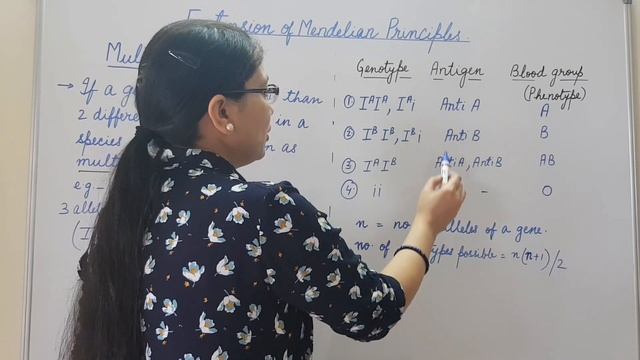 Extension of Mendelian Principles.
Mul
→ If a g than
2 differe in a
species as
mult
eg-
3 alle
(I
Genotype Antigen Blood group
(Phenotype)
① IᴬIᴬ, Iᴬi Anti A A
② IᴮIᴮ, Iᴮi Anti B B
③ IᴬIᴮ Anti A, Anti B AB
④ ii - O
n = no alleles of a gene.
no. of types possible = n(n+1)/2